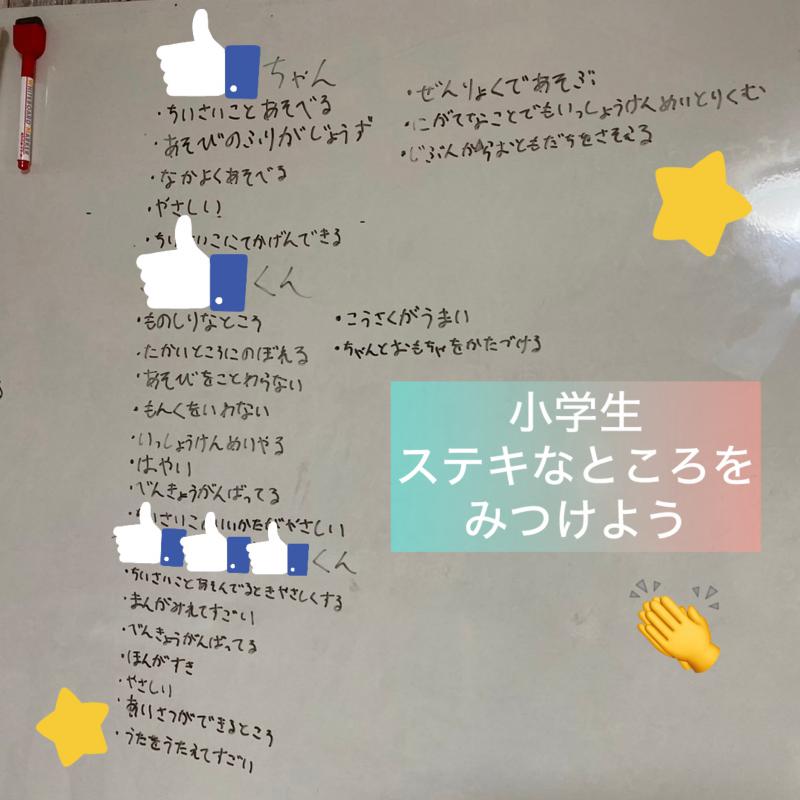 ちゃん
・ちいさいことあそべる
・あそびのふりがじょうず
・なかよくあそべる
・やさしい
・ちいさいこにてかげんできる
・ぜんりょくであそぶ
・にがてなことでもいっしょうけんめいとりくむ
・じぶんからおともだちをさそえる
くん
・ものしりなところ
・たかいところにのぼれる
・あそびをことわらない
・もんくをいわない
・いっしょうけんめいやる
・はやい
・べんきょうがんばってる
・ちいさいこにいいかたがやさしい
・こうさくがうまい
・ちゃんとおもちゃをかたづける
くん
・ちいさいことあそんでるときやさしくする
・まんがみれてすごい
・べんきょうがんばってる
・ほんがすき
・やさしい
・あいさつができるところ
・うたをうたえてすごい
小学生
ステキなところを
みつけよう
WHITEBOARD MARKER